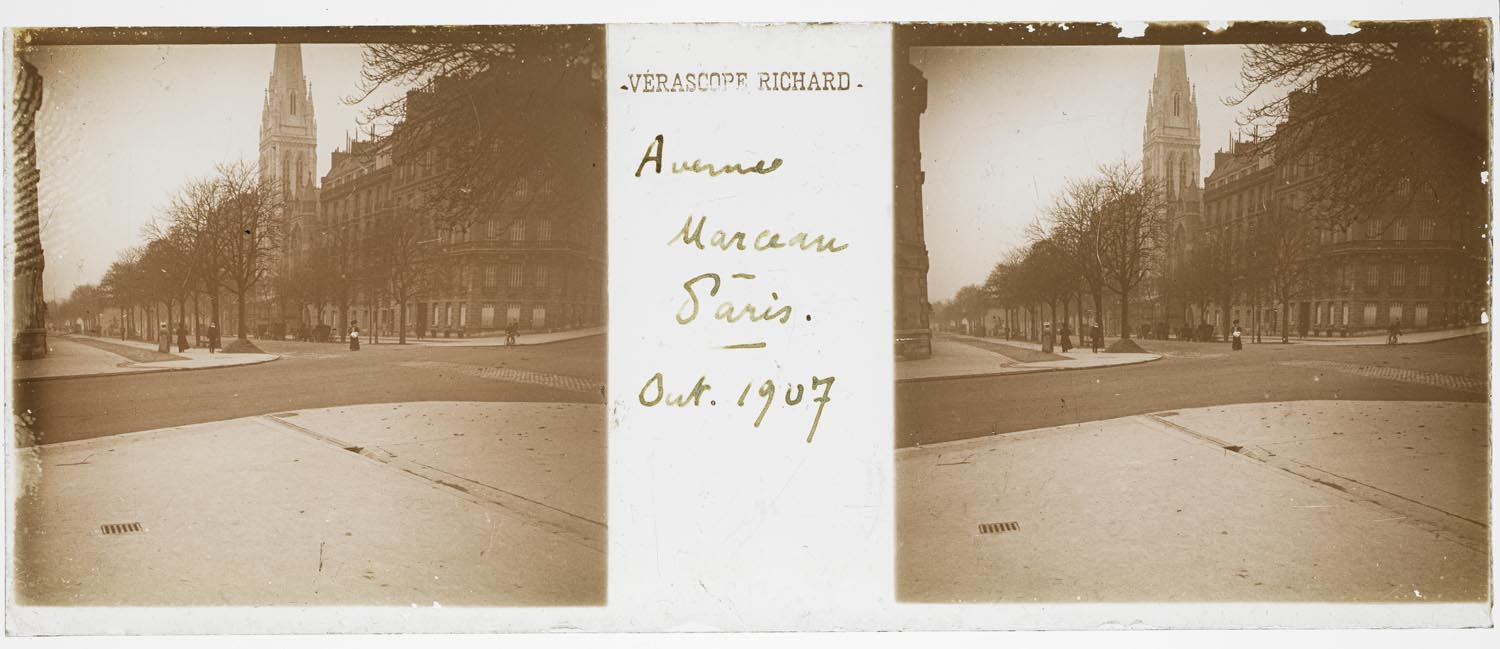 VÉRASCOPE RICHARD.
Avenue
Marceau
Paris.
Oct. 1907